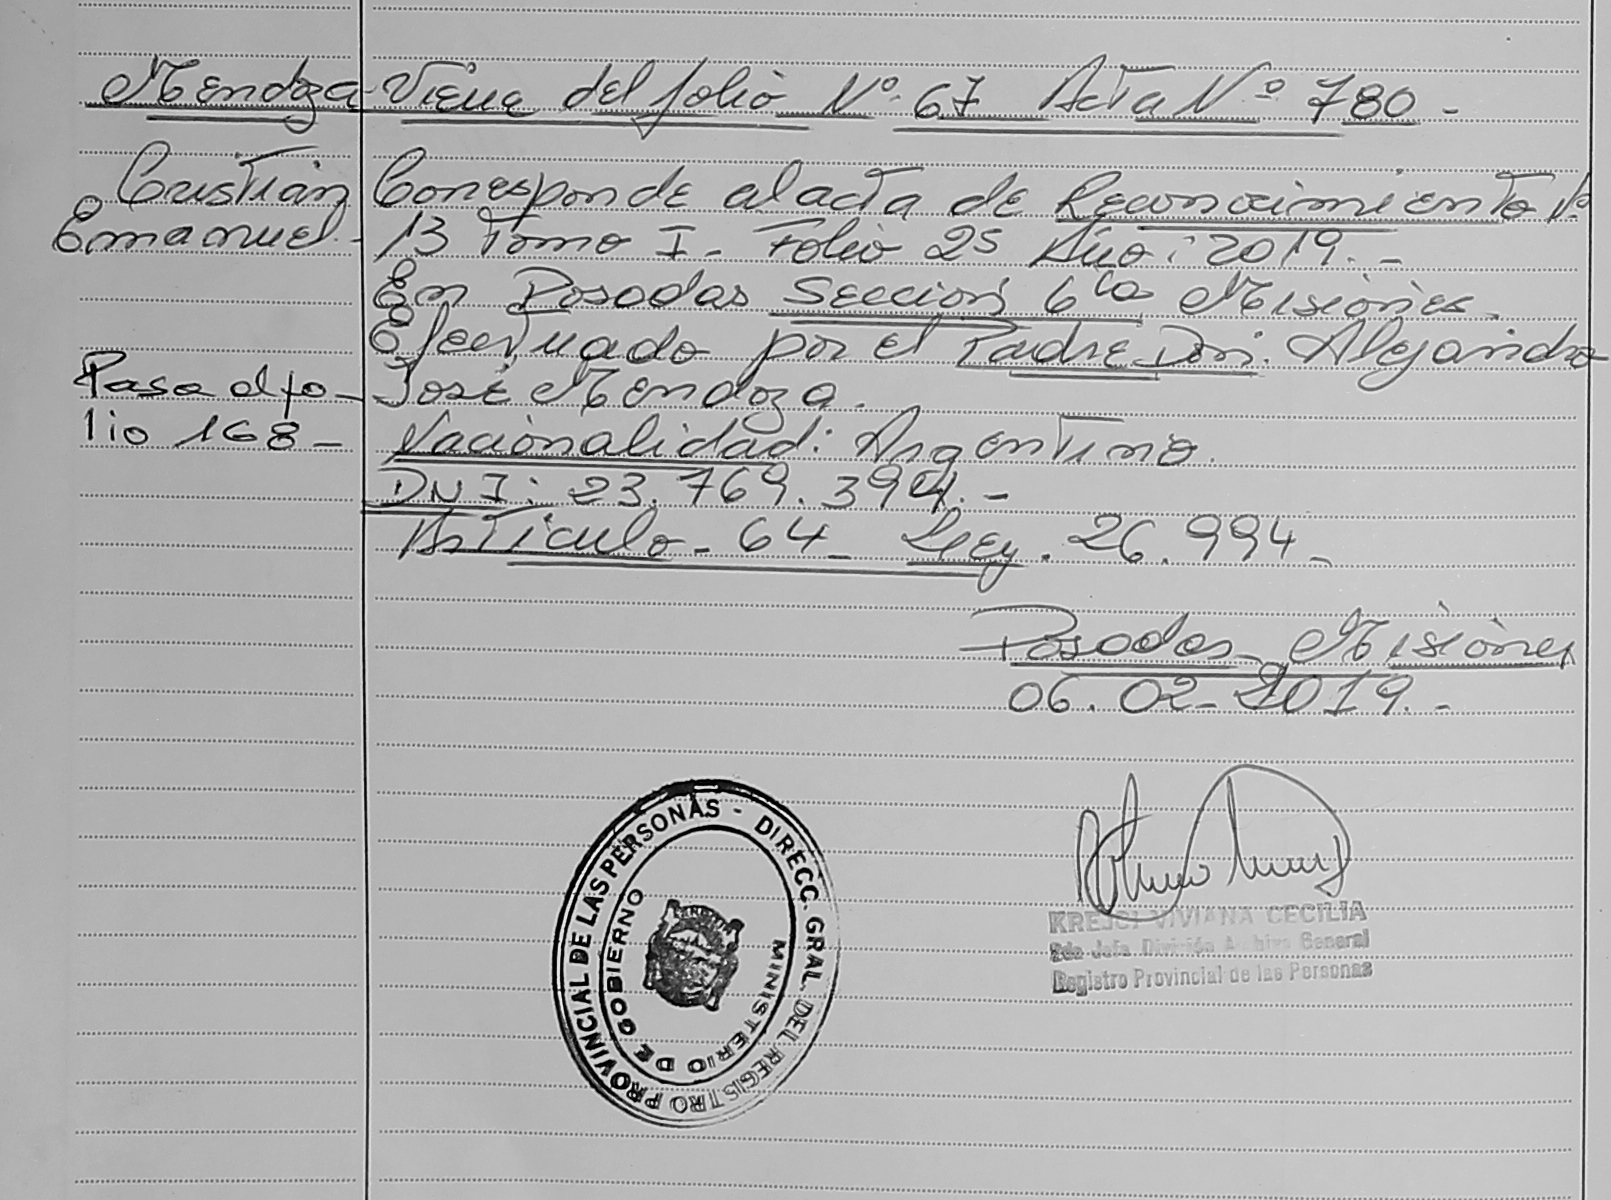 Mendoza
Cristian
Emanuel.-
Pasa al fo-
lio 168-
Viene del folio Nº 67 Acta Nº 780-
Corresponde al acta de Reconocimiento Nº
13 Tomo I- Folio 25 Año: 2019.-
En Posadas Sección 6ta Misiones.
Efectuado por el Padre Don: Alejandro
José Mendoza.
Nacionalidad: Argentino.
DNI: 23.769.394.-
Articulo- 64- Ley. 26.994-
Posadas- Misiones
06.02-2019.-
DIRECC. GRAL. DEL REGISTRO PROVINCIAL DE LAS PERSONAS -
MINISTERIO DE GOBIERNO
KREJCI VIVIANA CECILIA
2da Jefa División Archivo General
Registro Provincial de las Personas